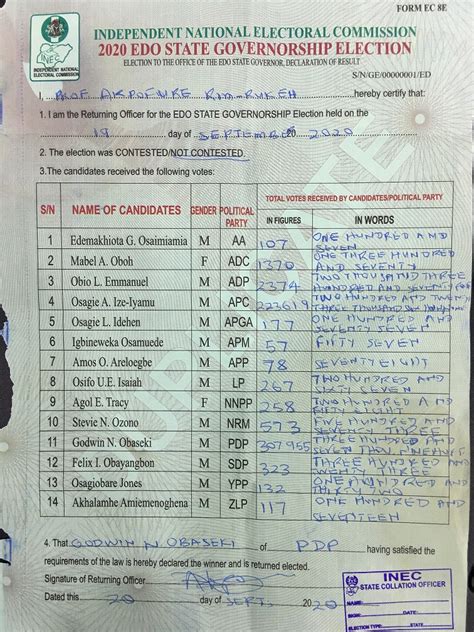 FORM EC 8E
INDEPENDENT NATIONAL ELECTORAL COMMISSION
2020 EDO STATE GOVERNORSHIP ELECTION
ELECTION TO THE OFFICE OF THE EDO STATE GOVERNOR, DECLARATION OF RESULT
INEC
INDEPENDENT NATIONAL
ELECTORAL COMMISSION
S/N/GE/00000001/ED
I, PROF AKPOFURE RIM-RUKEH hereby certify that:
1. I am the Returning Officer for the EDO STATE GOVERNORSHIP Election held on the
19 day of SEPTEMBER 20 2020
2. The election was CONTESTED/NOT CONTESTED.
3.The candidates received the following votes:
S/N NAME OF CANDIDATES GENDER POLITICAL PARTY TOTAL VOTES RECEIVED BY CANDIDATES/POLITICAL PARTY
IN FIGURES IN WORDS
1 Edemakhiota G. Osaimiamia M AA 107 ONE HUNDRED AND SEVEN
2 Mabel A. Oboh F ADC 1370 ONE THREE HUNDRED AND SEVENTY
3 Obio L. Emmanuel M ADP 2374 TWO THOUSAND THREE HUNDRED AND SEVENTY
4 Osagie A. Ize-Iyamu M APC 223619 TWO HUNDRED AND TWENTY THREE THOUSAND
5 Osagie L. Idehen M APGA 177 ONE HUNDRED AND SEVENTY SEVEN
6 Igbineweka Osamuede M APM 57 FIFTY SEVEN
7 Amos O. Areloegbe M APP 78 SEVENTY EIGHT
8 Osifo U.E. Isaiah M LP 267 TWO HUNDRED AND SIXTY SEVEN
9 Agol E. Tracy F NNPP 258 TWO HUNDRED AND FIFTY EIGHT
10 Stevie N. Ozono M NRM 573 FIVE HUNDRED AND SEVENTY THREE
11 Godwin N. Obaseki M PDP 307955 THREE HUNDRED AND SEVEN THOU
12 Felix I. Obayangbon M SDP 323 THREE HUNDRED AND TWENTY THREE
13 Osagiobare Jones M YPP 132 ONE HUNDRED AND THIRTY TWO
14 Akhalamhe Amiemenoghena M ZLP 117 ONE HUNDRED AND SEVENTEEN
DUPLICATE
4. That GODWIN N OBASEKI of PDP having satisfied the
requirements of the law is hereby declared the winner and is returned elected.
Signature of Returning Officer
Dated this 20 day of SEPT. 2020
INEC
STATE COLLATION OFFICER
SIGN:
NAME:
ELECTION TYPE: STATE: